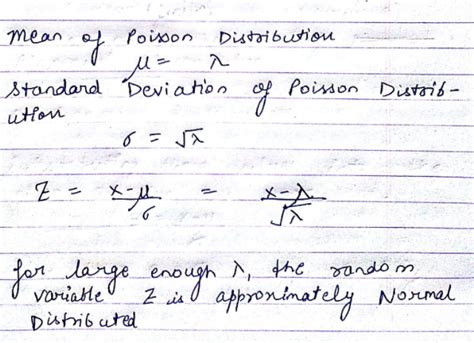 Mean of Poisson Distribution
μ = λ
Standard Deviation of Poisson Distrib-
ution
σ = √λ
Z = x-μ/σ = x-λ/√λ
for large enough λ, the random
variable Z is approximately Normal
Distributed